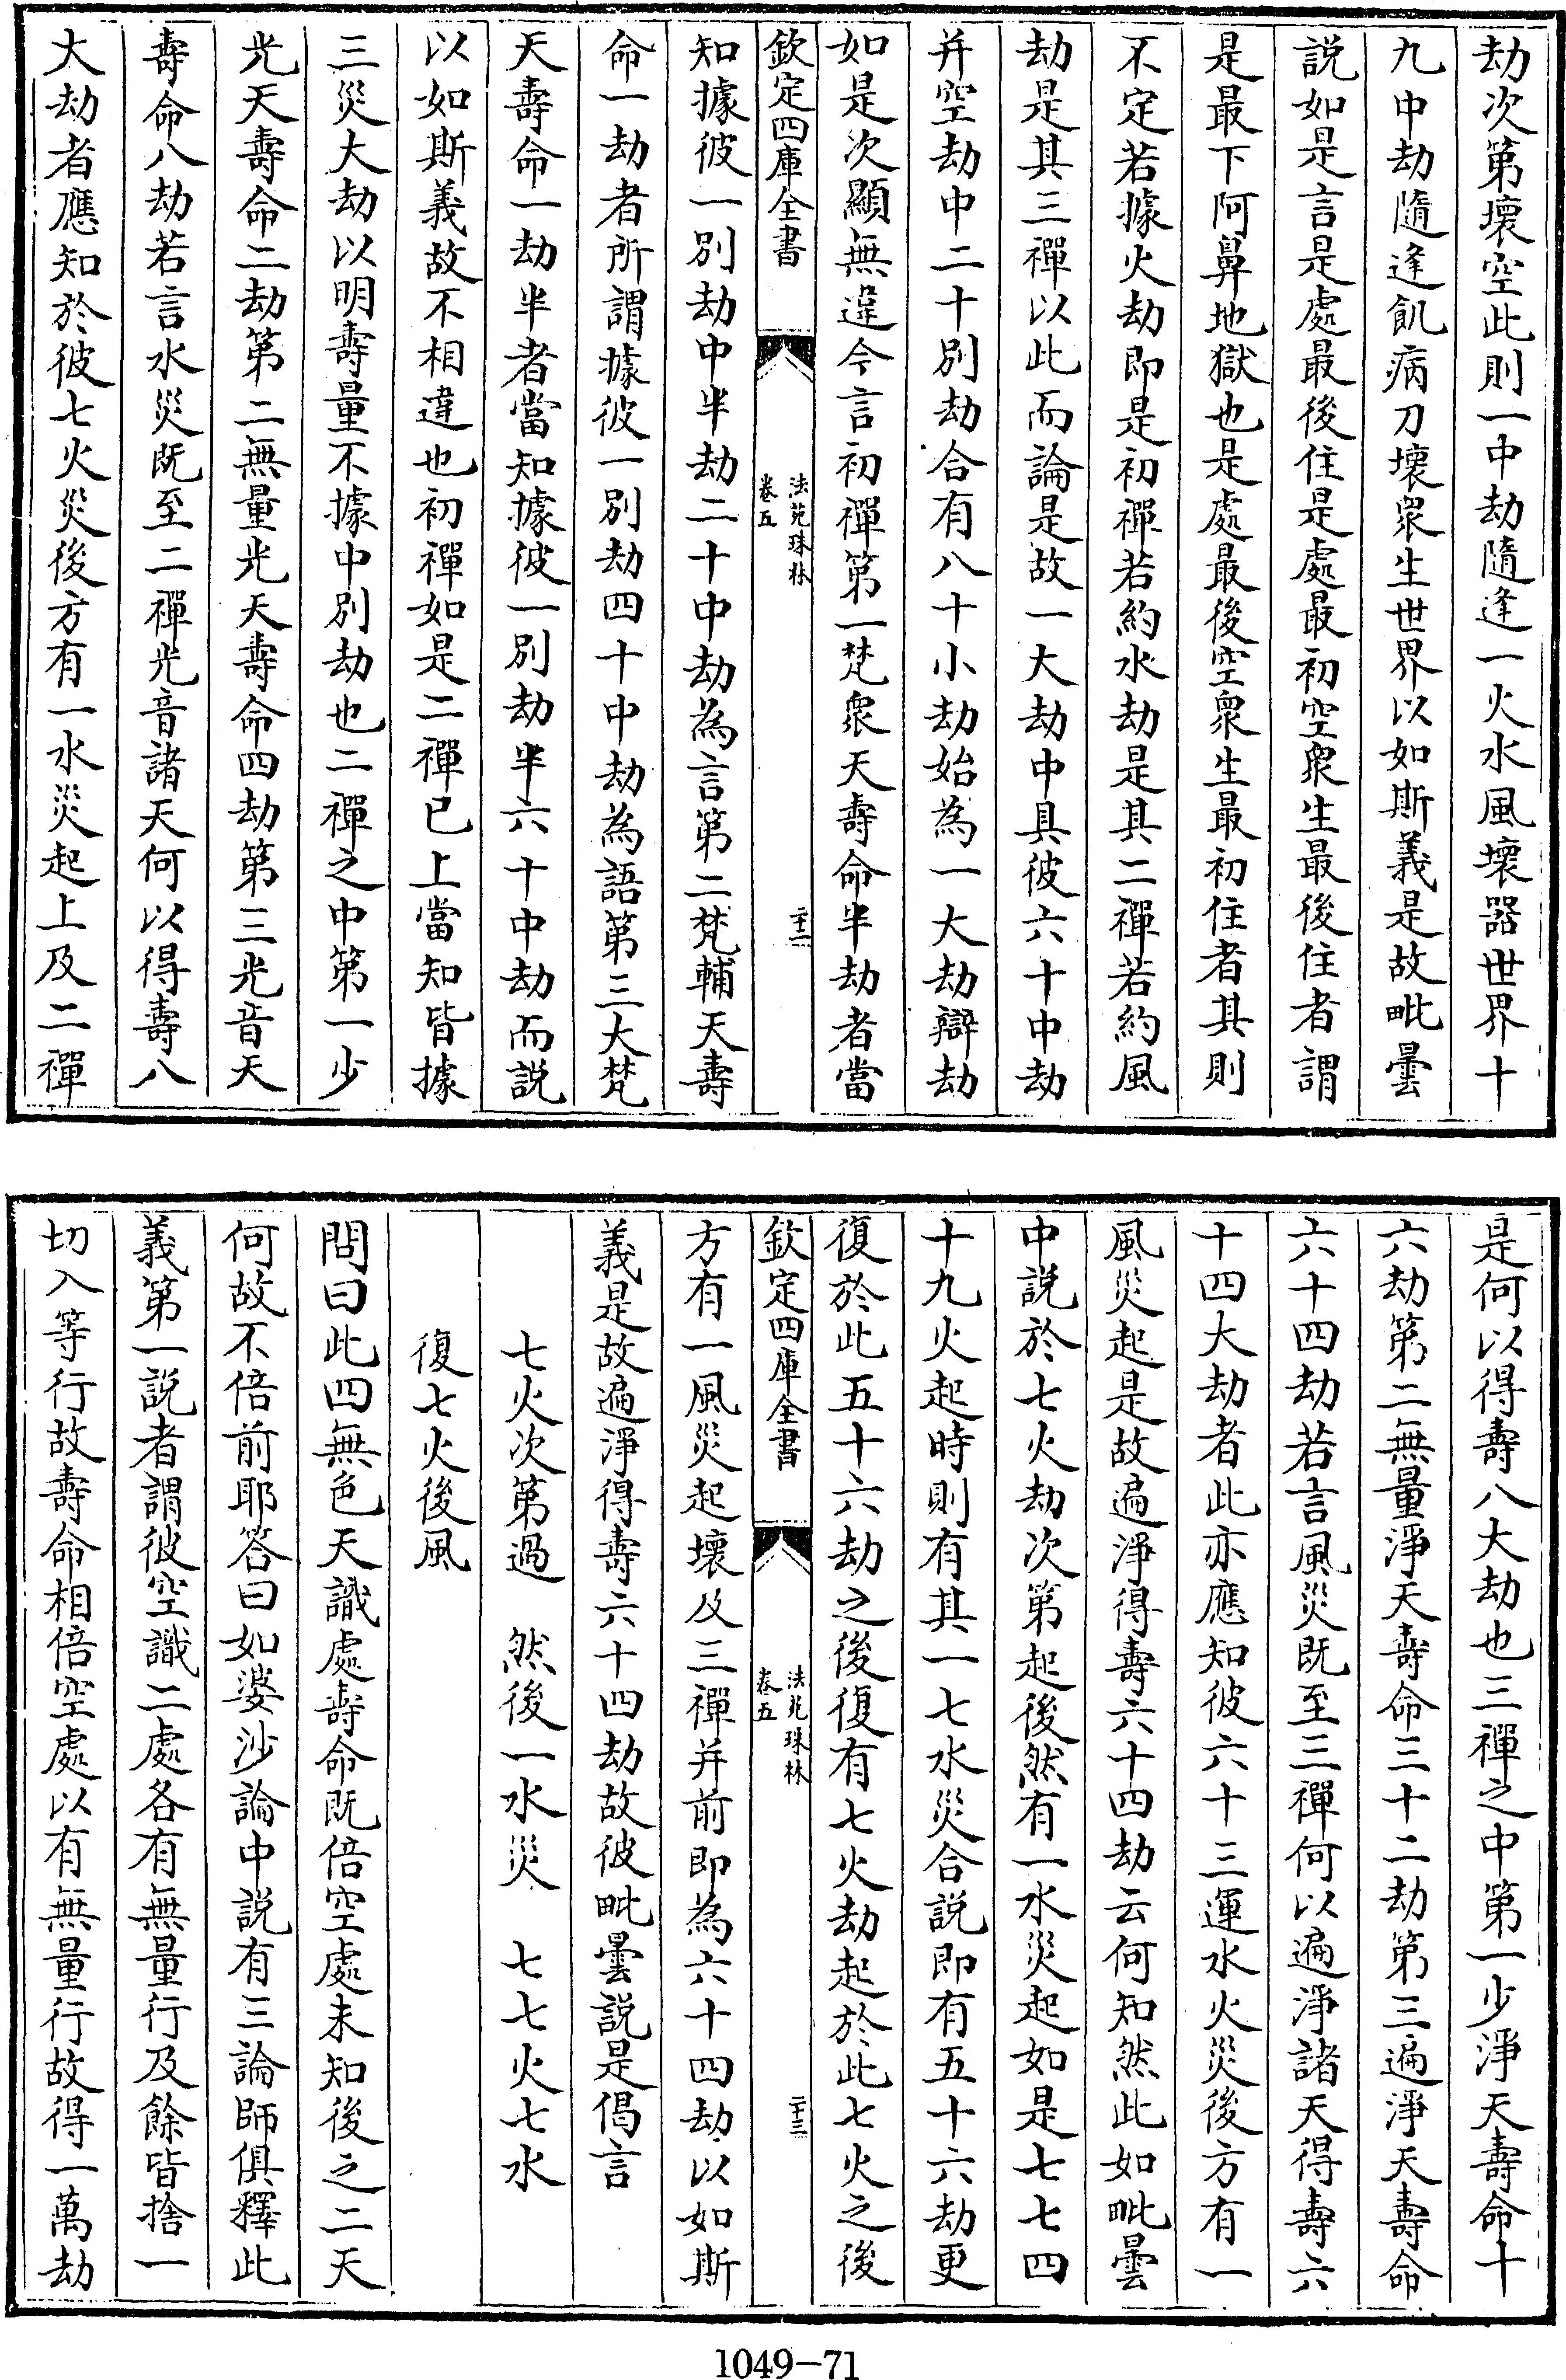 劫次第壞空此則一中劫隨逢一火水風壞器世界十
九中劫隨逢飢病刀壞衆生世界以如斯義是故毗曇
説如是言是處最後住是處最初空衆生最後住者謂
是最下阿鼻地獄也是處最後空衆生最初住者其則
不定若據火劫即是初禪若約水劫是其二禪若約風
劫是其三禪以此而論是故一大劫中具彼六十中劫
并空劫中二十別劫合有八十小劫始為一大劫辯劫
如是次顯無違今言初禪第一梵衆天壽命半劫者當
欽定四庫全書
法苑珠林
卷五
二十二
知據彼一別劫中半劫二十中劫為言第二梵輔天壽
命一劫者所謂據彼一別劫四十中劫為語第三大梵
天壽命一劫半者當知據彼一別劫半六十中劫而説
以如斯義故不相違也初禪如是二禪已上當知皆據
三災大劫以明壽量不據中別劫也二禪之中第一少
光天壽命二劫第二無量光天壽命四劫第三光音天
壽命八劫若言水災既至二禪光音諸天何以得壽八
大劫者應知於彼七火災後方有一水災起上及二禪
是何以得壽八大劫也三禪之中第一少淨天壽命十
六劫第二無量淨天壽命三十二劫第三遍淨天壽命
六十四劫若言風災既至三禪何以遍淨諸天得壽六
十四大劫者此亦應知彼六十三運水火災後方有一
風災起是故遍淨得壽六十四劫云何知然此如毗曇
中説於七火劫次第起後然有一水災起如是七七四
十九火起時則有其一七水災合説即有五十六劫更
復於此五十六劫之後復有七火劫起於此七火之後
欽定四庫全書
法苑珠林
卷五
二十三
方有一風災起壞及三禪并前即為六十四劫以如斯
義是故遍淨得壽六十四劫故彼毗曇説是偈言
七火次第過　然後一水災　七七火七水
復七火後風
問曰此四無色天識處壽命既倍空處未知後之二天
何故不倍前耶答曰如婆沙論中説有三論師俱釋此
義第一説者謂彼空識二處各有無量行及餘皆捨一
切入等行故壽命相倍空處以有無量行故得一萬劫
1049-71